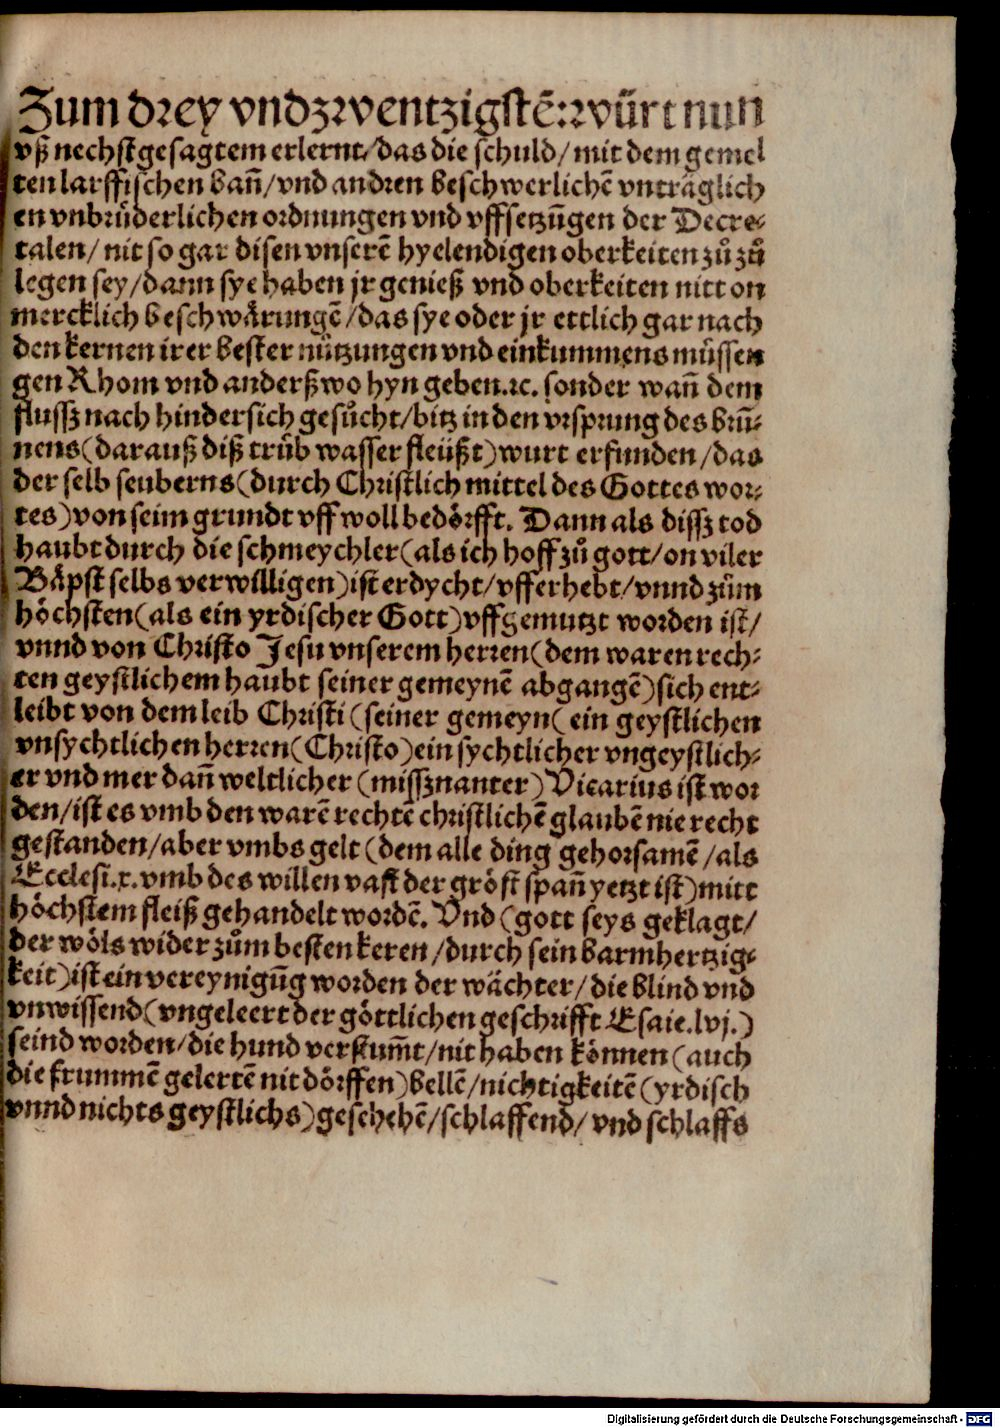 Zum drey vndzwentzigstē: würt nun
vß nechstgesagtem erlernt/das die schuld/mit dem gemel
ten larffischen bañ/vnd andren beschwerlichē vnträglich
en vnbrüderlichen ordnungen vnd vffsetzūgen der Decre⸗
talen/ nit so gar disen vnserē hyelendigen oberkeiten zů zů
legen sey/dann sye haben jr genieß vnd oberkeiten nitt on
mercklich beschwärungē/das sye oder jr ettlich gar nach
den kernen irer bester nützungen vnd einkummens müssen
gen Rhom vnd anderßwo hyn geben.⁊c. sonder wañ dem
flussz nach hindersich gesůcht/bitz in den vrsprung des brū⸗
nens(darauß diß trüb wasser fleüßt)wurt erfunden/das
der selb seuberns(durch Christlich mittel des Gottes wor⸗
tes)von seim grundt vff woll bedörfft. Dann als dissz tod
haubt durch die schmeychler(als ich hoff zů gott/on viler
Bäpst selbs verwilligen)ist erdycht/vfferhebt/vnnd zům
höchsten(als ein yrdischer Gott)vffgemutzt worden ist/
vnnd von Christo Jesu vnserem herren(dem waren rech⸗
ten geystlichem haubt seiner gemeynē abgangē)sich ent⸗
leibt von dem leib Christi(seiner gemeyn(ein geystlichen
vnsychtlichen herren(Christo)ein sychtlicher vngeystlich⸗
er vnd mer dañ weltlicher(missznanter)Vicarius ist wor
den/ist es vmb den warē rechtē christlichē glaubē nie recht
gestanden/aber vmbs gelt(dem alle ding gehorsamē/als
Ecclesi.x.vmb des willen vast der gröst spañ yetzt ist)mitt
höchstem fleiß gehandelt wordē. Vnd(gott seys geklagt/
der wöls wider zům besten keren/durch sein barmhertzig⸗
keit)ist ein vereynigūg worden der wächter/die blind vnd
vnwissend(vngeleert der göttlichen geschrifft Esaie.lvj.)
seind worden/die hund verstum̄t/nit haben können(auch
die frummē gelertē nit dörffen)bellē/nichtigkeitē(yrdisch
vnnd nichts geystlichs)geschehē/schlaffend/vnd schlaffs
Digitalisierung gefördert durch die Deutsche Forschungsgemeinschaft - DFG